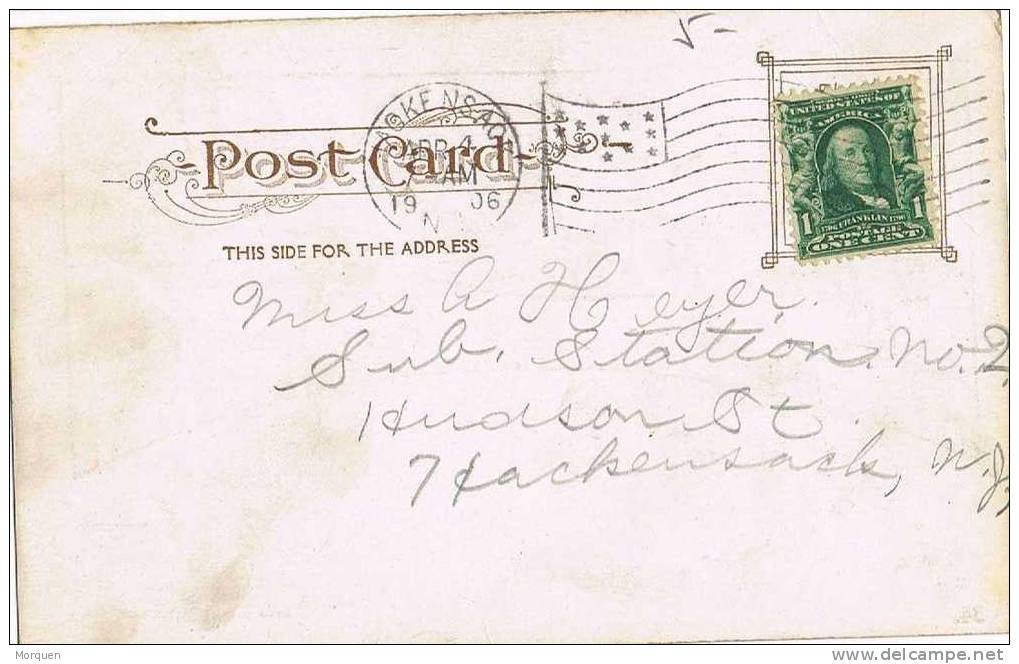 5-
HACKENSACK
APR 4
AM
1906
N
Post Card
THIS SIDE FOR THE ADDRESS
UNITED STATES OF
AMERICA
1 1
1706 FRANKLIN 1790
POSTAGE
ONE CENT
Miss A Heyer.
Sub. Station. No. 2,
Hudson St.
Hackensack, N.J,
Morquen
delcampe.net